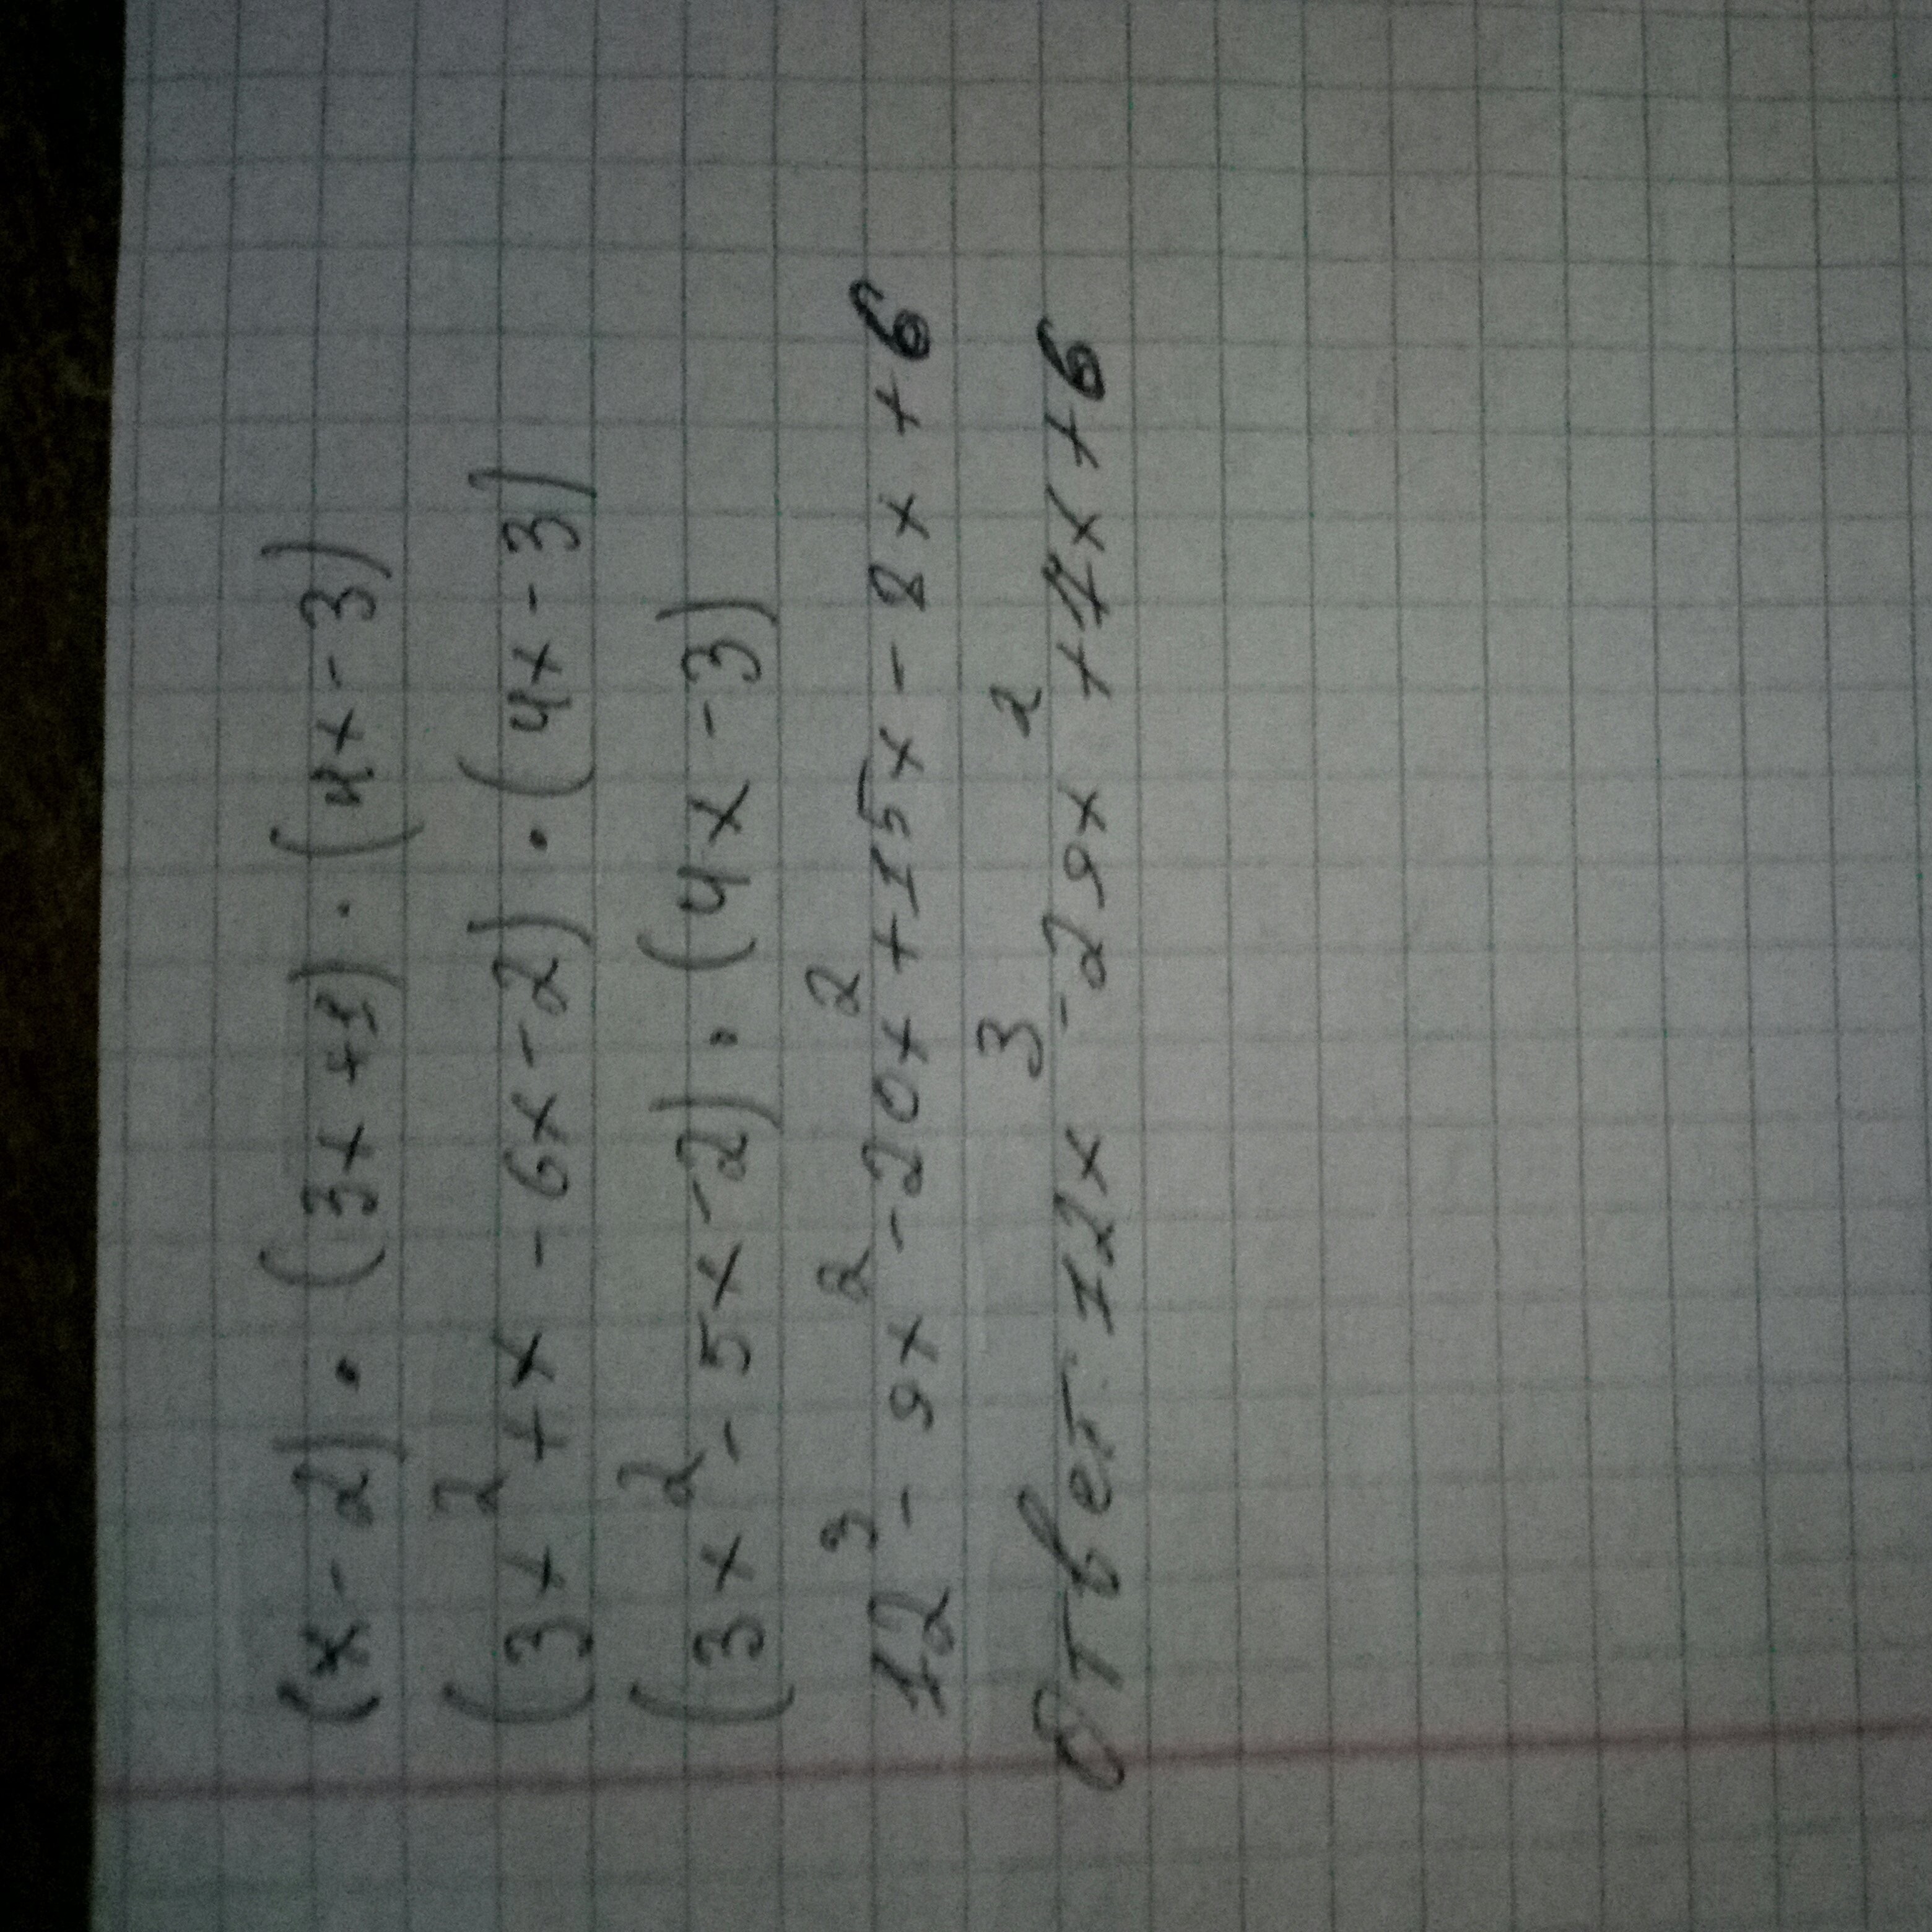 (x-2)·(3x+1)·(4x-3)
(3x²+x-6x-2)·(4x-3)
(3x²-5x-2)·(4x-3)
12³-9x²-20x²+15x-8x+6
Ответ 12x³-29x²+7x+6